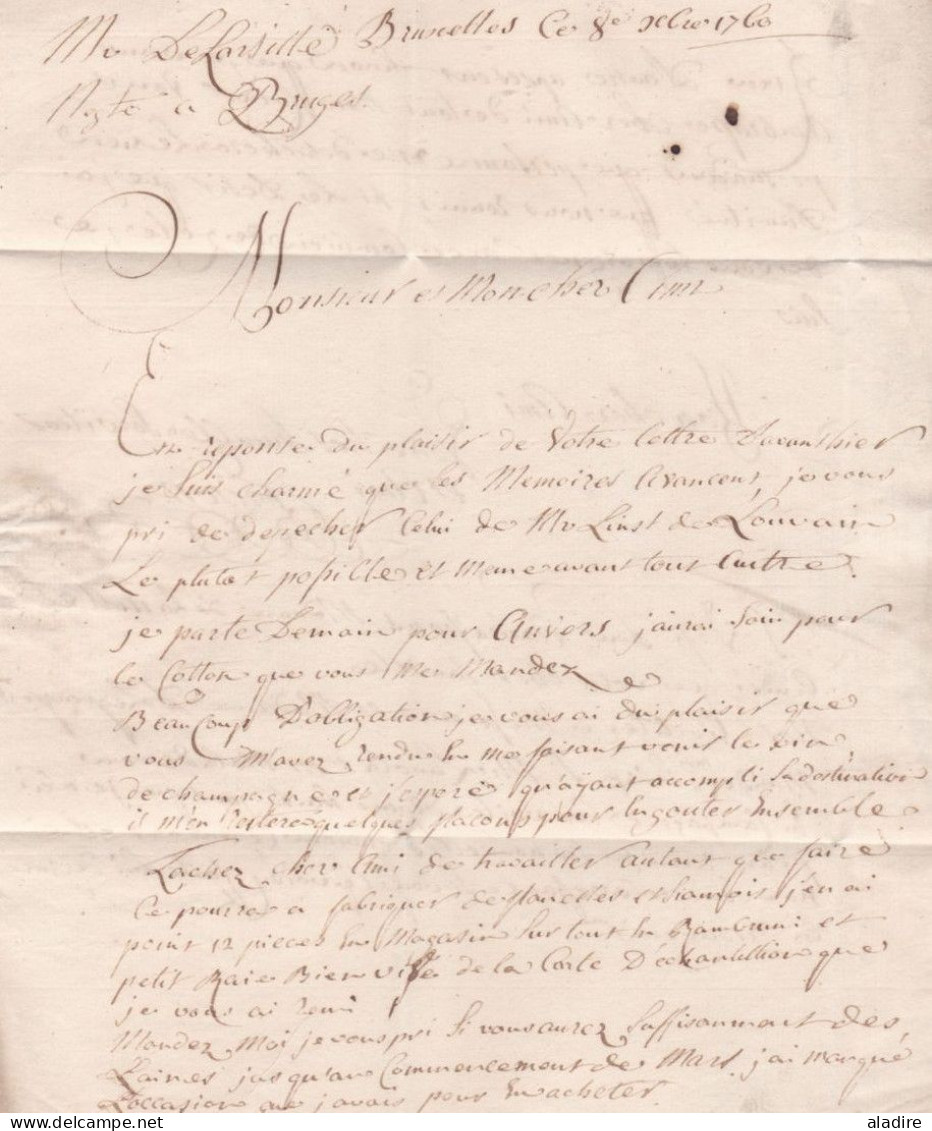 Mr DeLarsille Bruxelles Ce 8e xbre 1760
Negte a Bruges.
Monsieur et Mon cher Ami
En reponse du plaisir de Votre lettre Davanthier
je suis charmé que les Memoires Avancent, je vous
pri de depecher Celui de Mr Linst de Louvain
Le plutot possille et Meme avant tout Autre.
je parte Demain pour Anvers jaurai soin pour
le Cotton que vous Me Mandez
Beaucoup D'obligation je vous ai du plaisir que
vous M'avez rendu En me faisant venir le vin
de champagne et j'espere qu'ayant accompli sa destination
il m'en restera quelques flacons pour En gouter Ensemble
Tachez cher Ami de travailler autant que faire
Ce pourra a fabriquer de flanelles et siamois j'en ai
point 12 pieces En Magasin sur tout En et
petit Raie Bien de la Carte D'échantillion que
je vous ai remi
Mandez Moi je vous pri Si vous aurez Suffisanment des
Laines jusqu'au Commencement de Mars, j'ai manqué
L'occasion que j'avais pour En acheter.
aladire